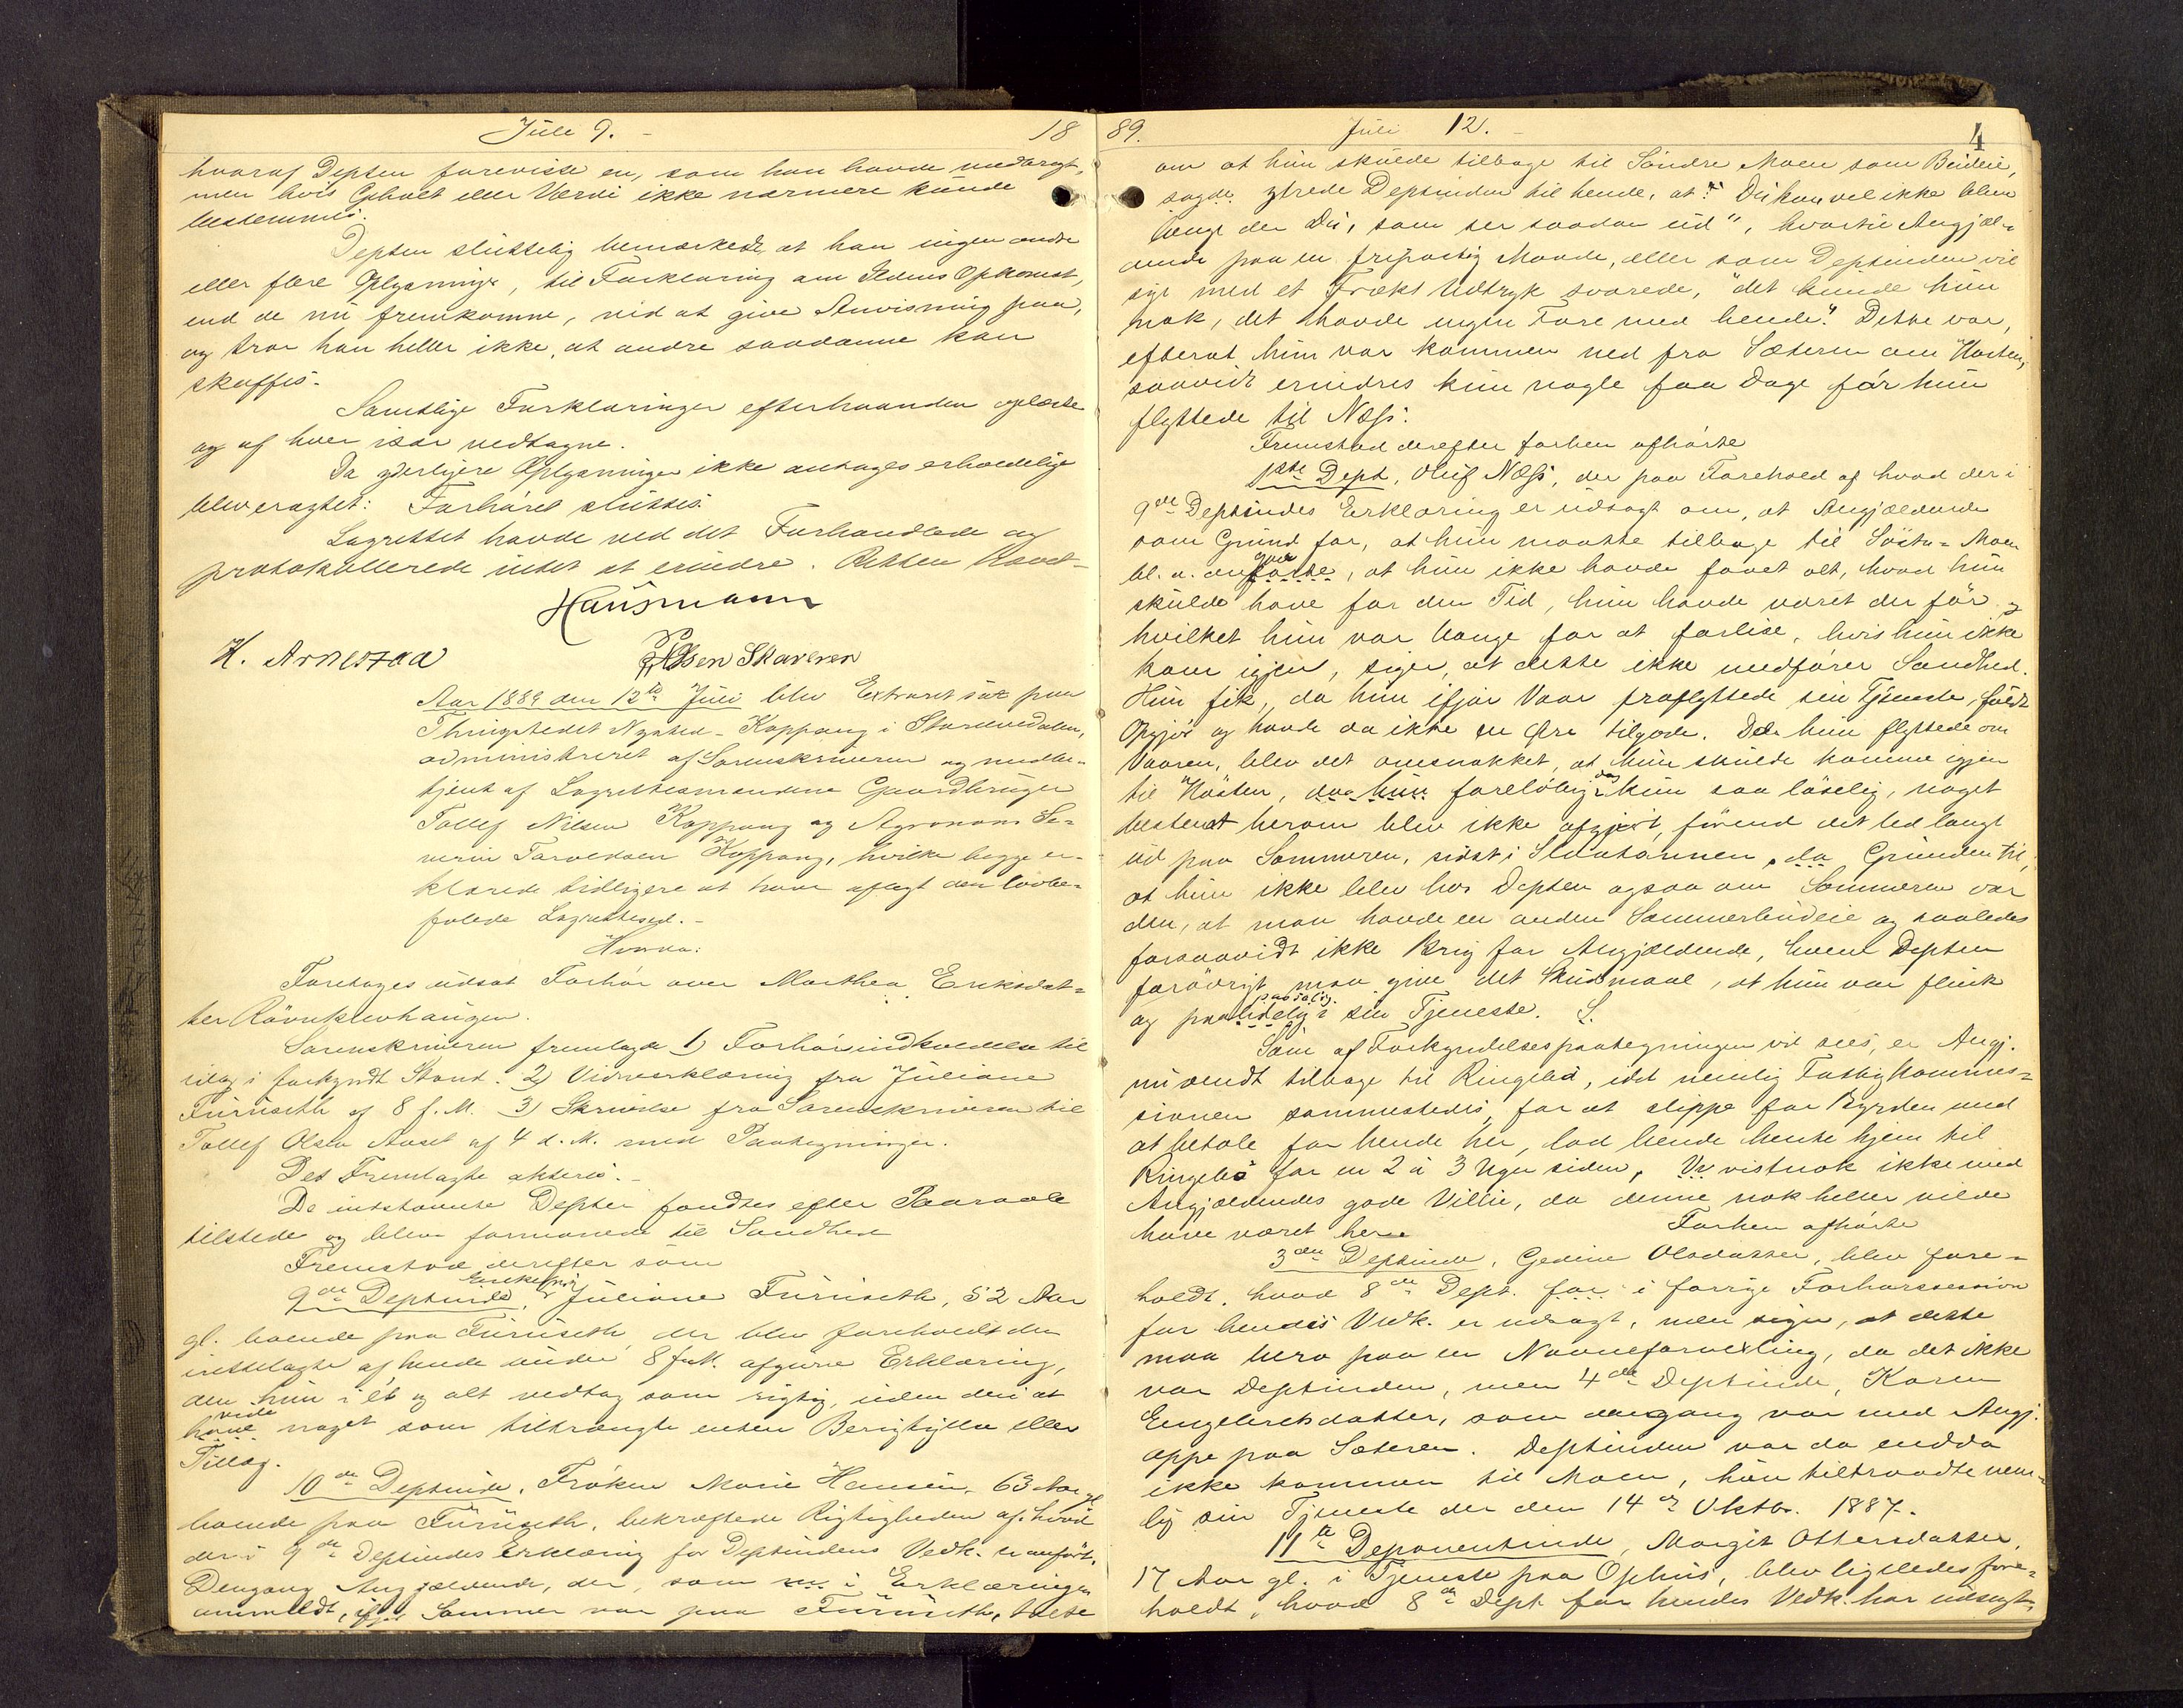 Juli 9. –
18
hvoraf Depten foreviste en, som han havde medbragt,
men hvis Gehalt eller Værdi ikke nærmere kunde
bestemmes.
Depten sluttelig bemærkede, at han ingen andre
eller flere Oplysninger, til Forklaring om Ildens Opkomst,
end de nu fremkomne, ved at give Anvisning paa,
og tror han heller ikke, at andre saadanne kan
skaffes.
Samtlige Forklaringer efterhaanden oplæste
og af hver især vedtagne.
Da yderligere Oplysninger ikke antages erholdelige
blev eragtet: Forhøret sluttes.
Lagrettet havde ved det Forhandlede og
protokollerede intet at erindre. Retten hævet –
Hausmann
H. Arnestad
Olsen Skaveren
Aar 1889 den 12te Juli blev Extraret sat paa
Thingstedet Nysted – Koppang i Storelvedalen,
administreret af Sorenskriveren og medbe-
tjent af Lagrettesmændene Gaardbruger
Tollef Nilsen Koppang og Agronom Se-
verin Tarvedsen Koppang, hvilke begge er-
klærede tidligere at have aflagt den lovbe-
falede Lagrettesed. –
Hvorda:
Foretages udsat Forhør over Marthea Eriksdat-
ter Røvnklevhaugen.
Sorenskriveren fremlagde 1) Forhørindkaldelse til
idag i forkyndt Stand. 2) Vidneerklæring fra Juliane
Furuseth af 8 f. M. 3) Skrivelse fra Sorenskriveren til
Tollef Olsen Aaset af 4 d. M. med Paategninger.
Det Fremlagte akteres. –
De indstævnte Depter fandtes efter Paaraab
tilstede og blev formanede til Sandhed
Fremstod derefter som
9de Deptinde, Enkefru Juliane Furuseth, 52 Aar
gl. boende paa Furuseth, der blev foreholdt den
inntelagte af hende under 8 f.M. afgivne Erklæring,
den hun i ét og alt vedtog som rigtig, uden deri at
have vide noget som tiltrængte enten Berigtigelse eller
Tillæg.
10de Deptinde. Frøken Marie Hansen, 63 Aar gl
boende paa Furuseth, bekræftede Rigtigheden af hvad
der i 9de Deptindes Erklæring for Deptindens Vedk. er anført.
Dengang Angjældende, der, som i Erklæringen
anmeldt, ifjor Sommer var paa Furuseth, talte
89.
Juli 12. –
4
om at hun skulde tilbage til Søndre Moen som Budeie,
sagde ytrede Deptinden til hende, at: "Du kan vel ikke blive
længe der Du, som ser saadan ud", hvortil Angjæl-
dende paa en fripostig Maade, eller som Deptinden vil
sige med et Frækt Udtryk svarede, "det kunde hun
nok, det havde ingen Fare med hende". Dette var,
efterat hun var kommen ned fra Sæteren om Høsten,
saavidt erindres kun nogle faa Dage før hun
flyttede til Næss.
Fremstod derefter forhen afhørte
1ste Dept, Oluf Næss, der paa Forehold af hvad der i
9de Deptindes Erklæring er udsagt om, at Angjældende
som Grund for, at hun maatte tilbage til Søstu-Moen
bl. a. anførte, at hun ikke havde faaet alt, hvad hun
skulde have for den Tid, hun havde været der før og
hvilket hun var bange for at forlise, hvis hun ikke
kom igjen, siger, at dette ikke medfører Sandhed.
Hun fik, da hun ifjor Vaar fraflyttede sin Tjeneste, fuldt
Opgjør og havde da ikke en Øre tilgode. Da hun flyttede om
Vaaren, blev det omsnakket, at hun skulde komme igjen
til Høsten, dog hun foreløbig dog kun saa løselig, noget
bestemt herom blev ikke afgjort, førend det led langt
ud paa Sommeren, sidst i Slaataannen, da Grunden til,
at hun ikke blev hos Depten ogsaa om Sommeren var
den, at man havde en anden Sommerbudeie og saaledes
forsaavidt ikke Brug for Angjældende, hvem Depten
forøvrigt maa give det Skudsmaal, at hun var flink
og paalidelig paalidelig i sin Tjeneste. S.
Som af Forkyndelsespaategningen vil sees, er Angj.
nu sendt tilbage til Ringebu, idet nemlig Fattigkommis-
sionen sammestedes, for at slippe for Byrden med
at betale for hende her, lod hende hente hjem til
Ringebu for en 2 à 3 Uger siden, vistnok ikke med
Angjældendes gode Villie, da denne nok heller vilde
have været her.
Forhen afhørte
3die Deptinde, Gedine Olsdatter, blev fore-
holdt, hvad 8de Dept. for i forrige Forhørssession
for hendes Vedk. er udsagt, men siger, at dette
maa bero paa en Navneforvexling, da det ikke
var Deptinden, men 4de Deptinde, Karen
Engebretsdatter, som dengang var med Angj.
oppe paa Sæteren. Deptinden var da endda
ikke kommen til Moen, hun tiltraadte nem-
lig sin Tjeneste der den 14de Oktbr. 1887.
11te Deponentinde, Margit Ottersdatter,
17 Aar gl. i Tjeneste paa Ophus, blev ligeledes fore-
holdt, hvad 8de Dept. for hendes Vedk. har udsagt,